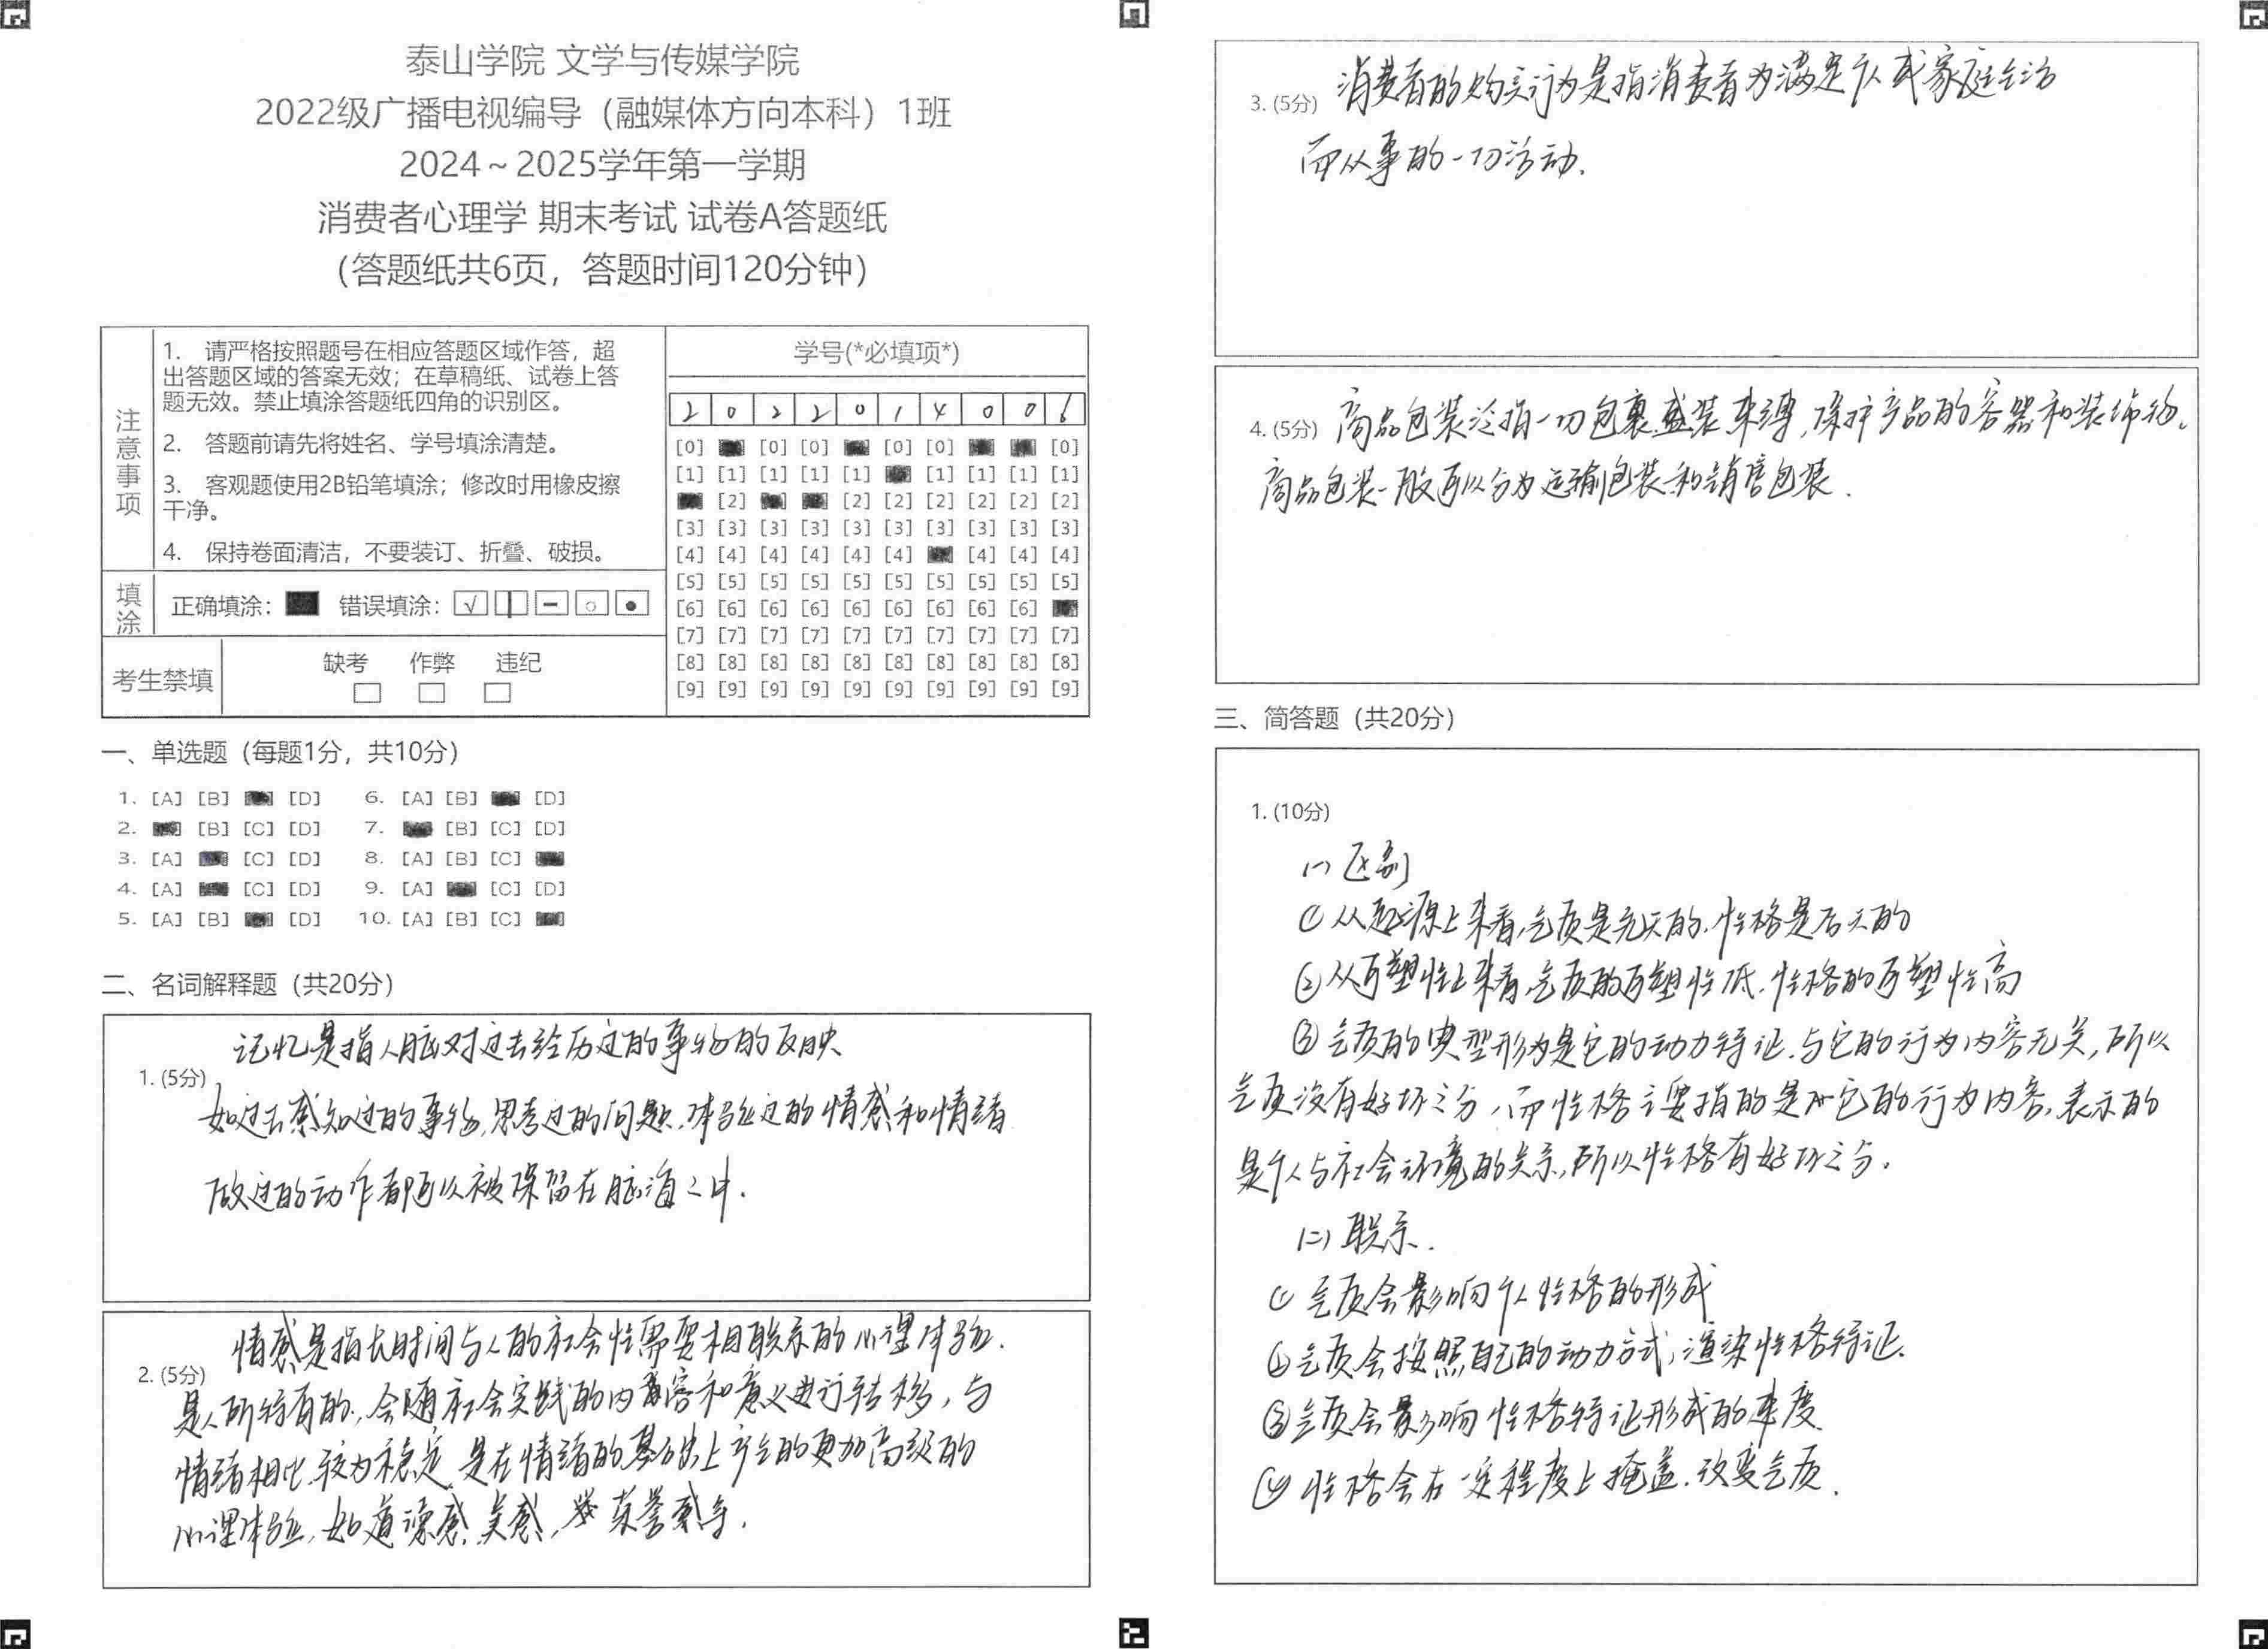 泰山学院 文学与传媒学院
2022级广播电视编导（融媒体方向本科）1班
2024～2025学年第一学期
消费者心理学 期末考试 试卷A答题纸
（答题纸共6页，答题时间120分钟）
注意事项
1. 请严格按照题号在相应答题区域作答，超
出答题区域的答案无效；在草稿纸、试卷上答
题无效。禁止填涂答题纸四角的识别区。
2. 答题前请先将姓名、学号填涂清楚。
3. 客观题使用2B铅笔填涂；修改时用橡皮擦
干净。
4. 保持卷面清洁，不要装订、折叠、破损。
填涂
正确填涂： 错误填涂：
考生禁填
缺考 作弊 违纪
学号(*必填项*)
2 0 2 2 0 1 4 0 0 6
[0] [0] [0] [0] [0] [0]
[1] [1] [1] [1] [1] [1] [1] [1] [1]
[2] [2] [2] [2] [2] [2] [2]
[3] [3] [3] [3] [3] [3] [3] [3] [3] [3]
[4] [4] [4] [4] [4] [4] [4] [4] [4]
[5] [5] [5] [5] [5] [5] [5] [5] [5] [5]
[6] [6] [6] [6] [6] [6] [6] [6] [6]
[7] [7] [7] [7] [7] [7] [7] [7] [7] [7]
[8] [8] [8] [8] [8] [8] [8] [8] [8] [8]
[9] [9] [9] [9] [9] [9] [9] [9] [9] [9]
一、单选题（每题1分，共10分）
1. [A] [B] [D] 6. [A] [B] [D]
2. [B] [C] [D] 7. [B] [C] [D]
3. [A] [C] [D] 8. [A] [B] [C]
4. [A] [C] [D] 9. [A] [C] [D]
5. [A] [B] [D] 10. [A] [B] [C]
二、名词解释题（共20分）
记忆是指人脑对过去经历过的事物的反映
1. (5分)
如过去感知过的事物,思考过的问题,体验过的情感和情绪
做过的动作都可以被保留在脑海之中.
情感是指长时间与人的社会性需要相联系的心理体验.
2. (5分)
是人所特有的,会随社会实践的内容和意义进行转移,与
情绪相比较为稳定,是在情绪的基础上产生的更加高级的
心理体验,如道德感,美感,荣誉感等.
3. (5分) 消费者的购买行为是指消费者为满足个人或家庭生活
而从事的一切活动.
4. (5分) 商品包装泛指一切包裹盛装束缚,保护产品的容器和装饰物.
商品包装一般可以分为运输包装和销售包装.
三、简答题（共20分）
1. (10分)
(一)区别
①从起源上来看,气质是先天的,性格是后天的
②从可塑性上来看,气质的可塑性低,性格的可塑性高
③气质的典型形为是它的动力特征,与它的行为内容无关,所以
气质没有好坏之分,而性格主要指的是它的行为内容,表示的
是个人与社会环境的关系,所以性格有好坏之分.
(二)联系.
①气质会影响个人性格的形成
②气质会按照自己的动力方式,渲染性格特征.
③气质会影响性格特征形成的速度
④性格会在一定程度上掩盖.改变气质.